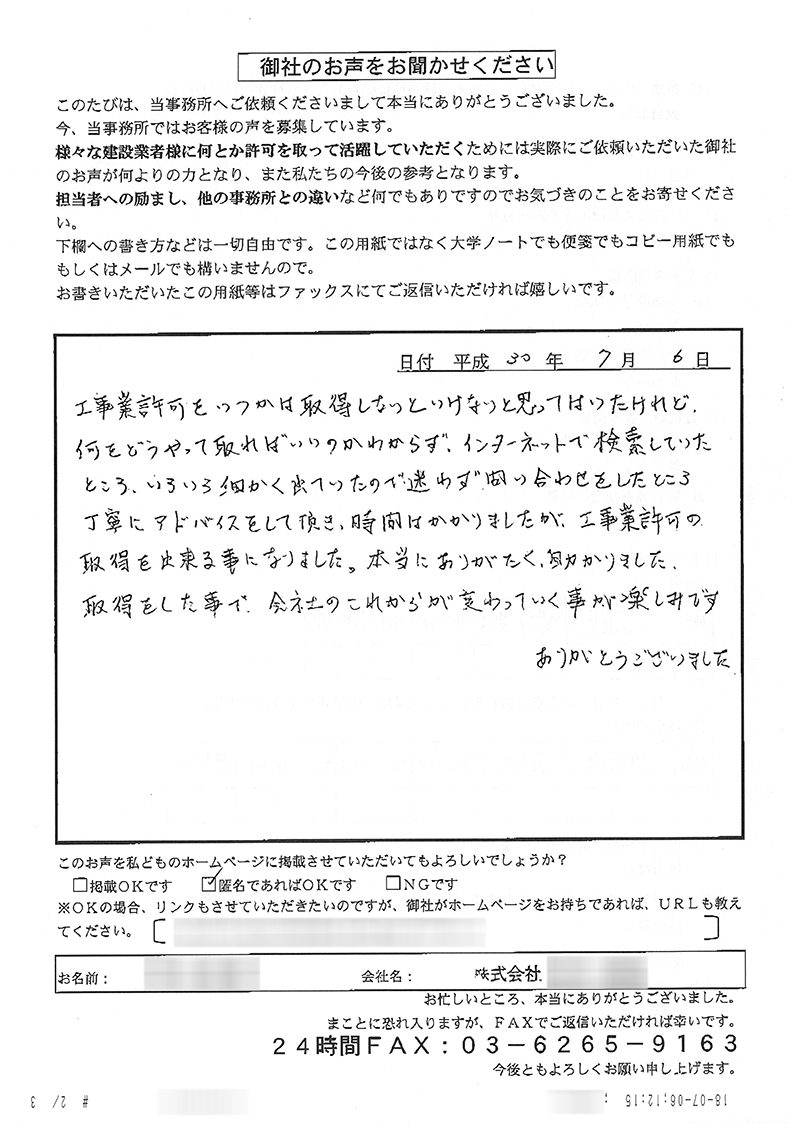 御社のお声をお聞かせください
このたびは、当事務所へご依頼くださいまして本当にありがとうございました。
今、当事務所ではお客様の声を募集しています。
様々な建設業者様に何とか許可を取って活躍していただくためには実際にご依頼いただいた御社
のお声が何よりの力となり、また私たちの今後の参考となります。
担当者への励まし、他の事務所との違いなど何でもありですのでお気づきのことをお寄せくださ
い。
下欄への書き方などは一切自由です。この用紙ではなく大学ノートでも便箋でもコピー用紙でも
もしくはメールでも構いませんので。
お書きいただいたこの用紙等はファックスにてご返信いただければ嬉しいです。
日付 平成 30 年 7 月 6 日
工事業許可をいつかは取得しないといけないと思ってはいたけれど、
何をどうやって取ればいいのかわからず、インターネットで検索していた
ところ、いろいろ細かく出ていたので迷わず問い合わせをしたところ
丁寧にアドバイスをして頂き、時間はかかりましたが、工事業許可の
取得を出来る事になりました。本当にありがたく、助かりました、
取得をした事で、会社のこれからが変わっていく事が楽しみです
ありがとうございました
このお声を私どものホームページに掲載させていただいてもよろしいでしょうか？
□掲載OKです ☑匿名であればOKです □NGです
※OKの場合、リンクもさせていただきたいのですが、御社がホームページをお持ちであれば、URLも教え
てください。〔 〕
お名前： 会社名： 株式会社
お忙しいところ、本当にありがとうございました。
まことに恐れ入りますが、FAXでご返信いただければ幸いです。
24時間FAX：03-6265-9163
今後ともよろしくお願い申し上げます。
18-07-06;12:15 ; # 2/ 3